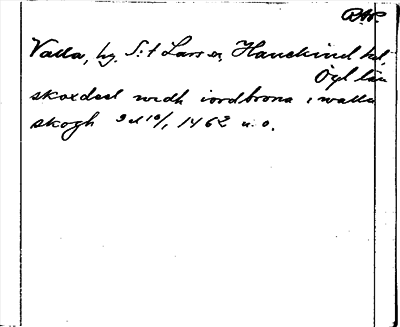 RAP.
Valla, by, S:t Lars sn, Hanekind hd,
Ögl län
skoxdeel widh iordbrona i walla
skogh 1462 u.o.